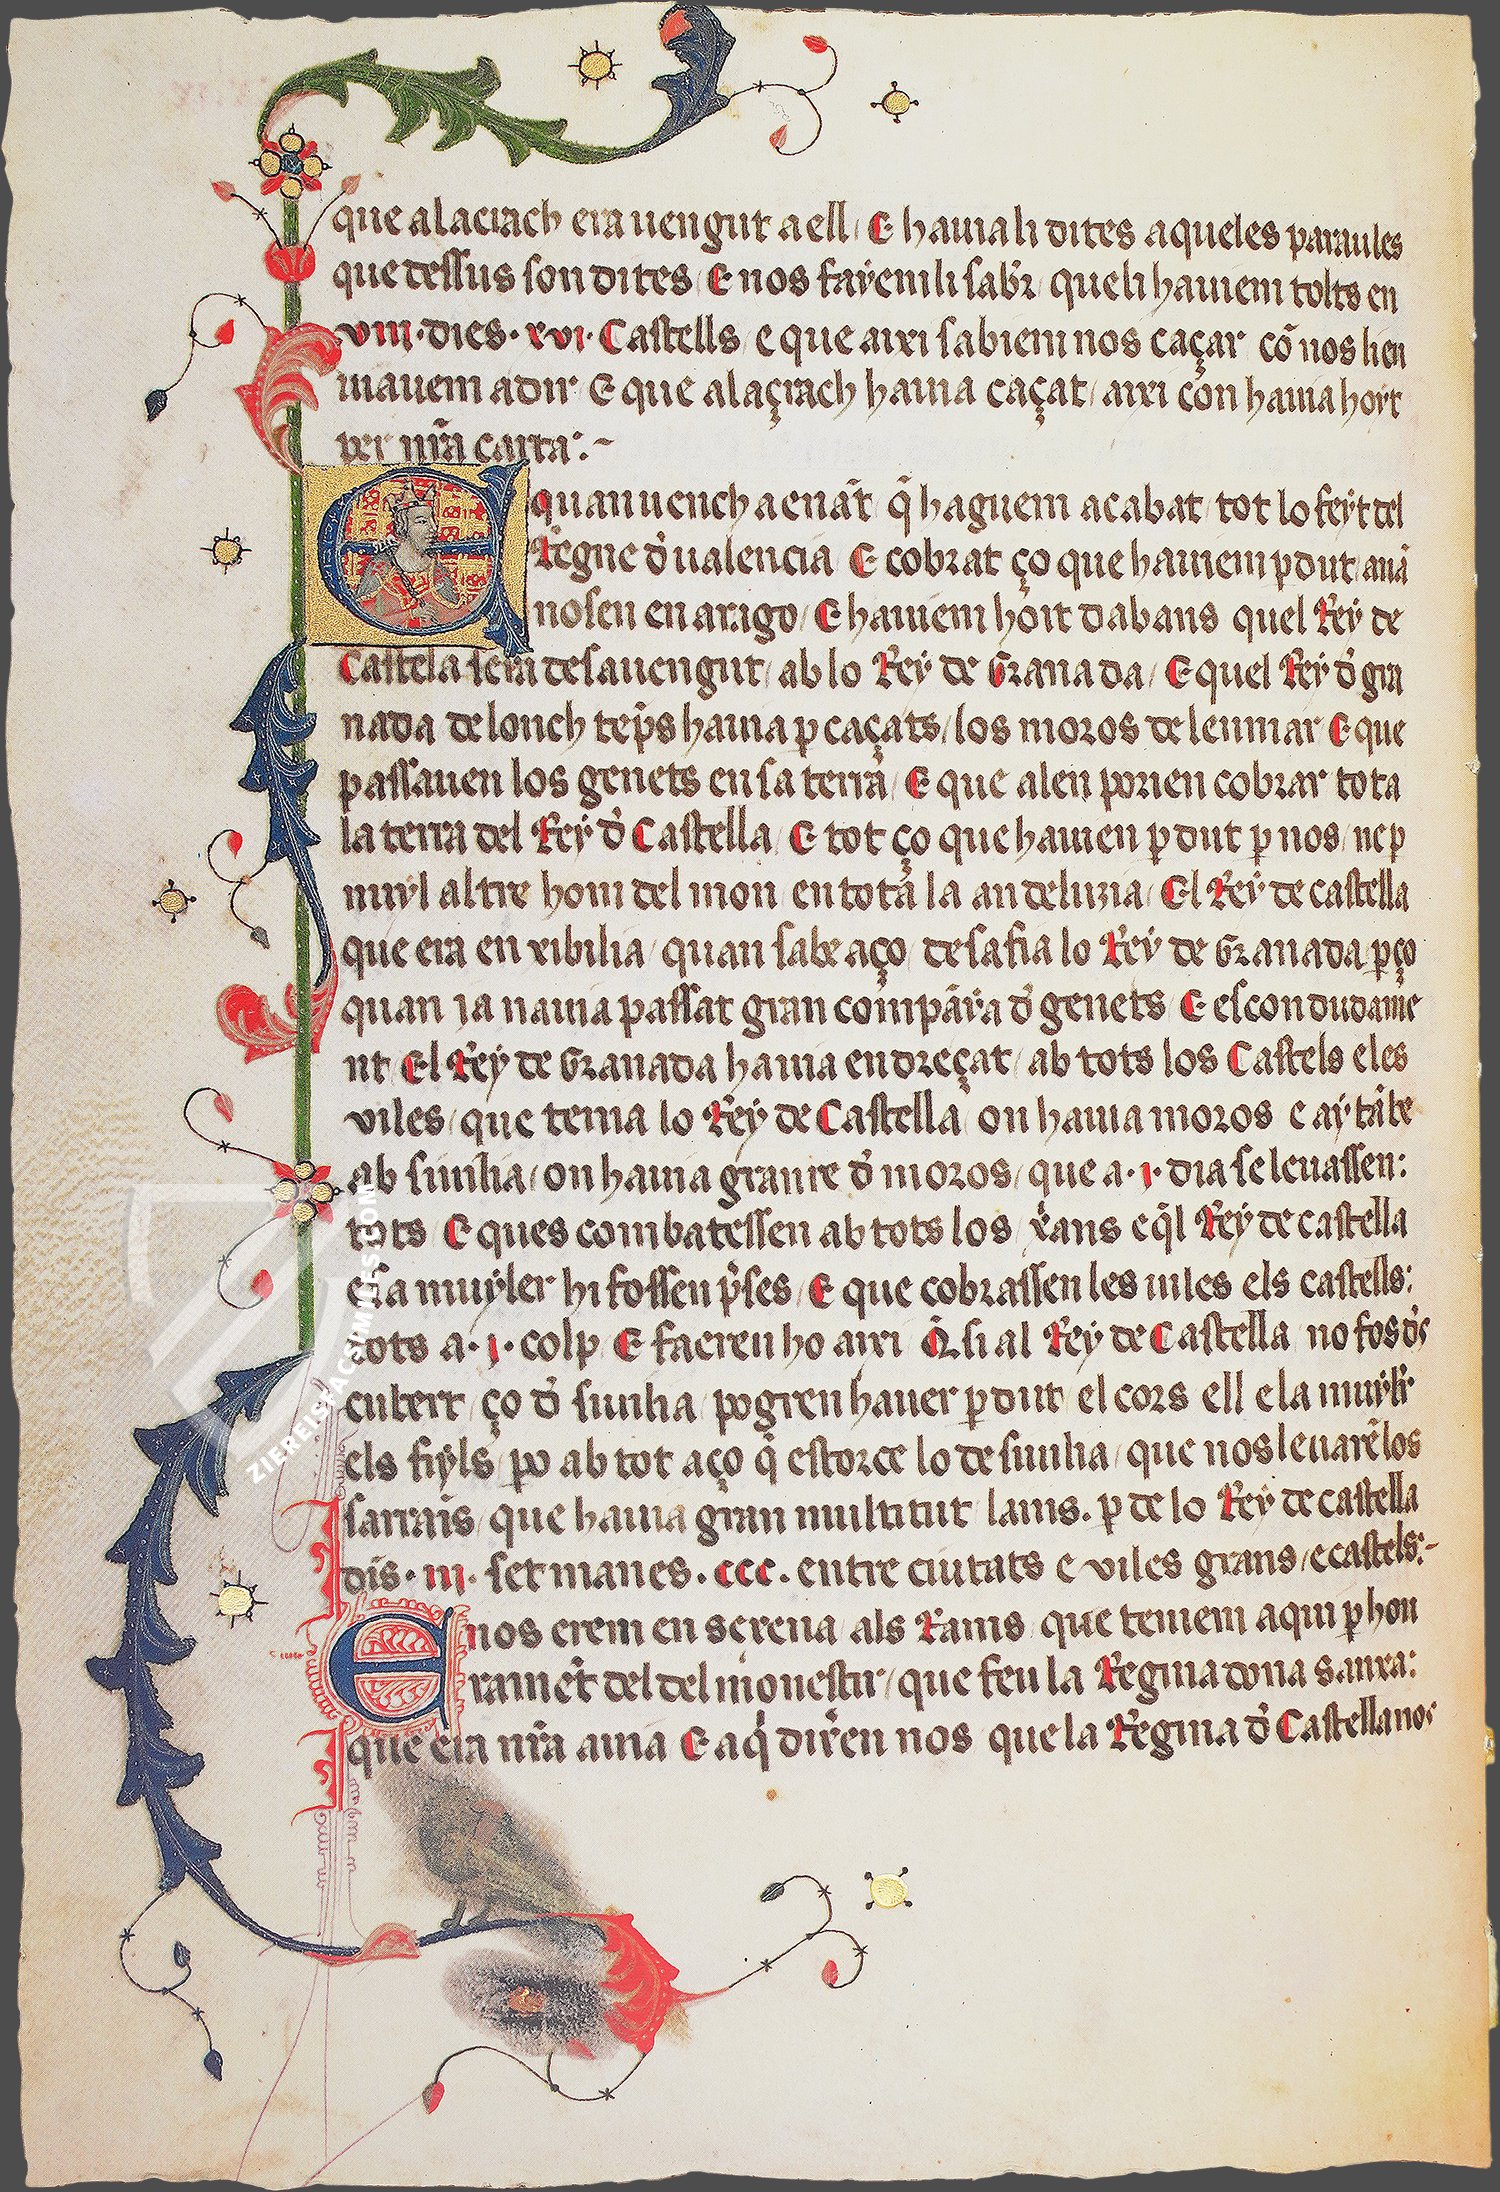 que alacrach era uengut a ell E hauia li dites aqueles paraules
que dessus son dites E nos fayem li sabr̃ que li hauiem tolts en
viii· dies· xvi· Castells e que axi sabiem nos caçar cõ nos lien
uiauem a dir E que alaçrach hauia caçat axi con hauia hoyt
per nr̃a carta:~
E quan uench aenãt q̃ haguem acabat tot lo feyt del
Regne d̉ ualencia E cobrat ço que hauiem pdut anã
nosen en arago E hauiem hoit dabans quel Rey de
Castela sera desauengut ab lo Rey de Granada E quel Rey d̉ gra
nada de lonch tep̃s hauia pcaçats los moros de lenmar E que
passauen los genets en sa terra E que alen porien cobrar tota
la terra del Rey d̉ Castella E tot ço que hauien pdut p nos ne p
nuyl altre hom del mon en tota la andeluzia El Rey de castella
que era en xibilia quan sabe aço desafia lo Rey de Granada pço
quan ia hauia passat gran companỹa d̉ genets E escondudame
nt El Rey de Granada hauia endreçat ab tots los Castels e les
viles que tenia lo Rey de Castella on hauia moros e aytãbe
ab siuilia on hauia granre d̉ moros que a· i· dia se leuassen:
tots E ques combatessen ab tots los xãns e q̃l Rey de castella
e sa muyler hi fossen p̃ses E que cobrassen les uiles els castells:
tots a· i· colp E faeren ho axi Q̃ si al Rey de Castella no fos d̉s
cubert ço d̉ siuilia pogren hauer pdut el cors ell e la muylr̃
els fiyls po ab tot aço q̃ estorce lo de siuilia que nos leuarẽ los
sarrains que hauia gran multitut lains. p de lo Rey de castella
dis· iii· setmanes· ccc· entre ciutats e viles grans e castels:~
E nos erem en serena als Rams que teniem aqui p hon
ramẽt del del monestir que feu la Regina dona sanxa:
que era nr̃a auia E aq̃ dixẽren nos que la Regina d̉ Castella nos
ZIEREIS FACSIMILES.COM